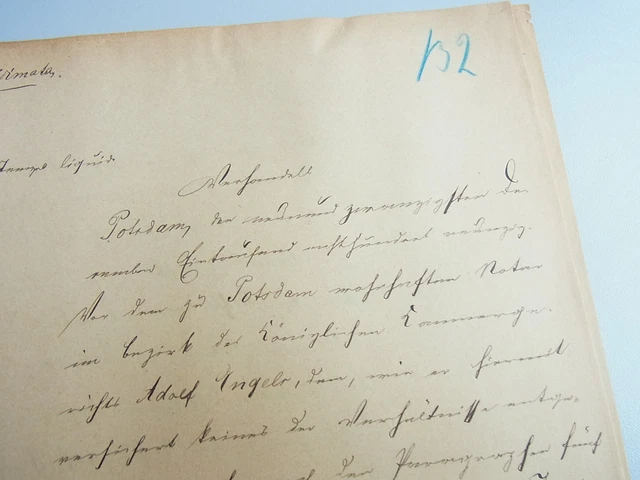 132
Verhandelt
Potsdam, den neunundzwanzigsten De-
zember Eintausend achthundert neunzig.
Vor dem zu Potsdam wohnhaften Notar
im Bezirk des Königlichen Kammerge-
richts Adolf Engels, dem, wie er hiermit
versichert keines der Verhältnisse entge-
der Paragraphen fünf